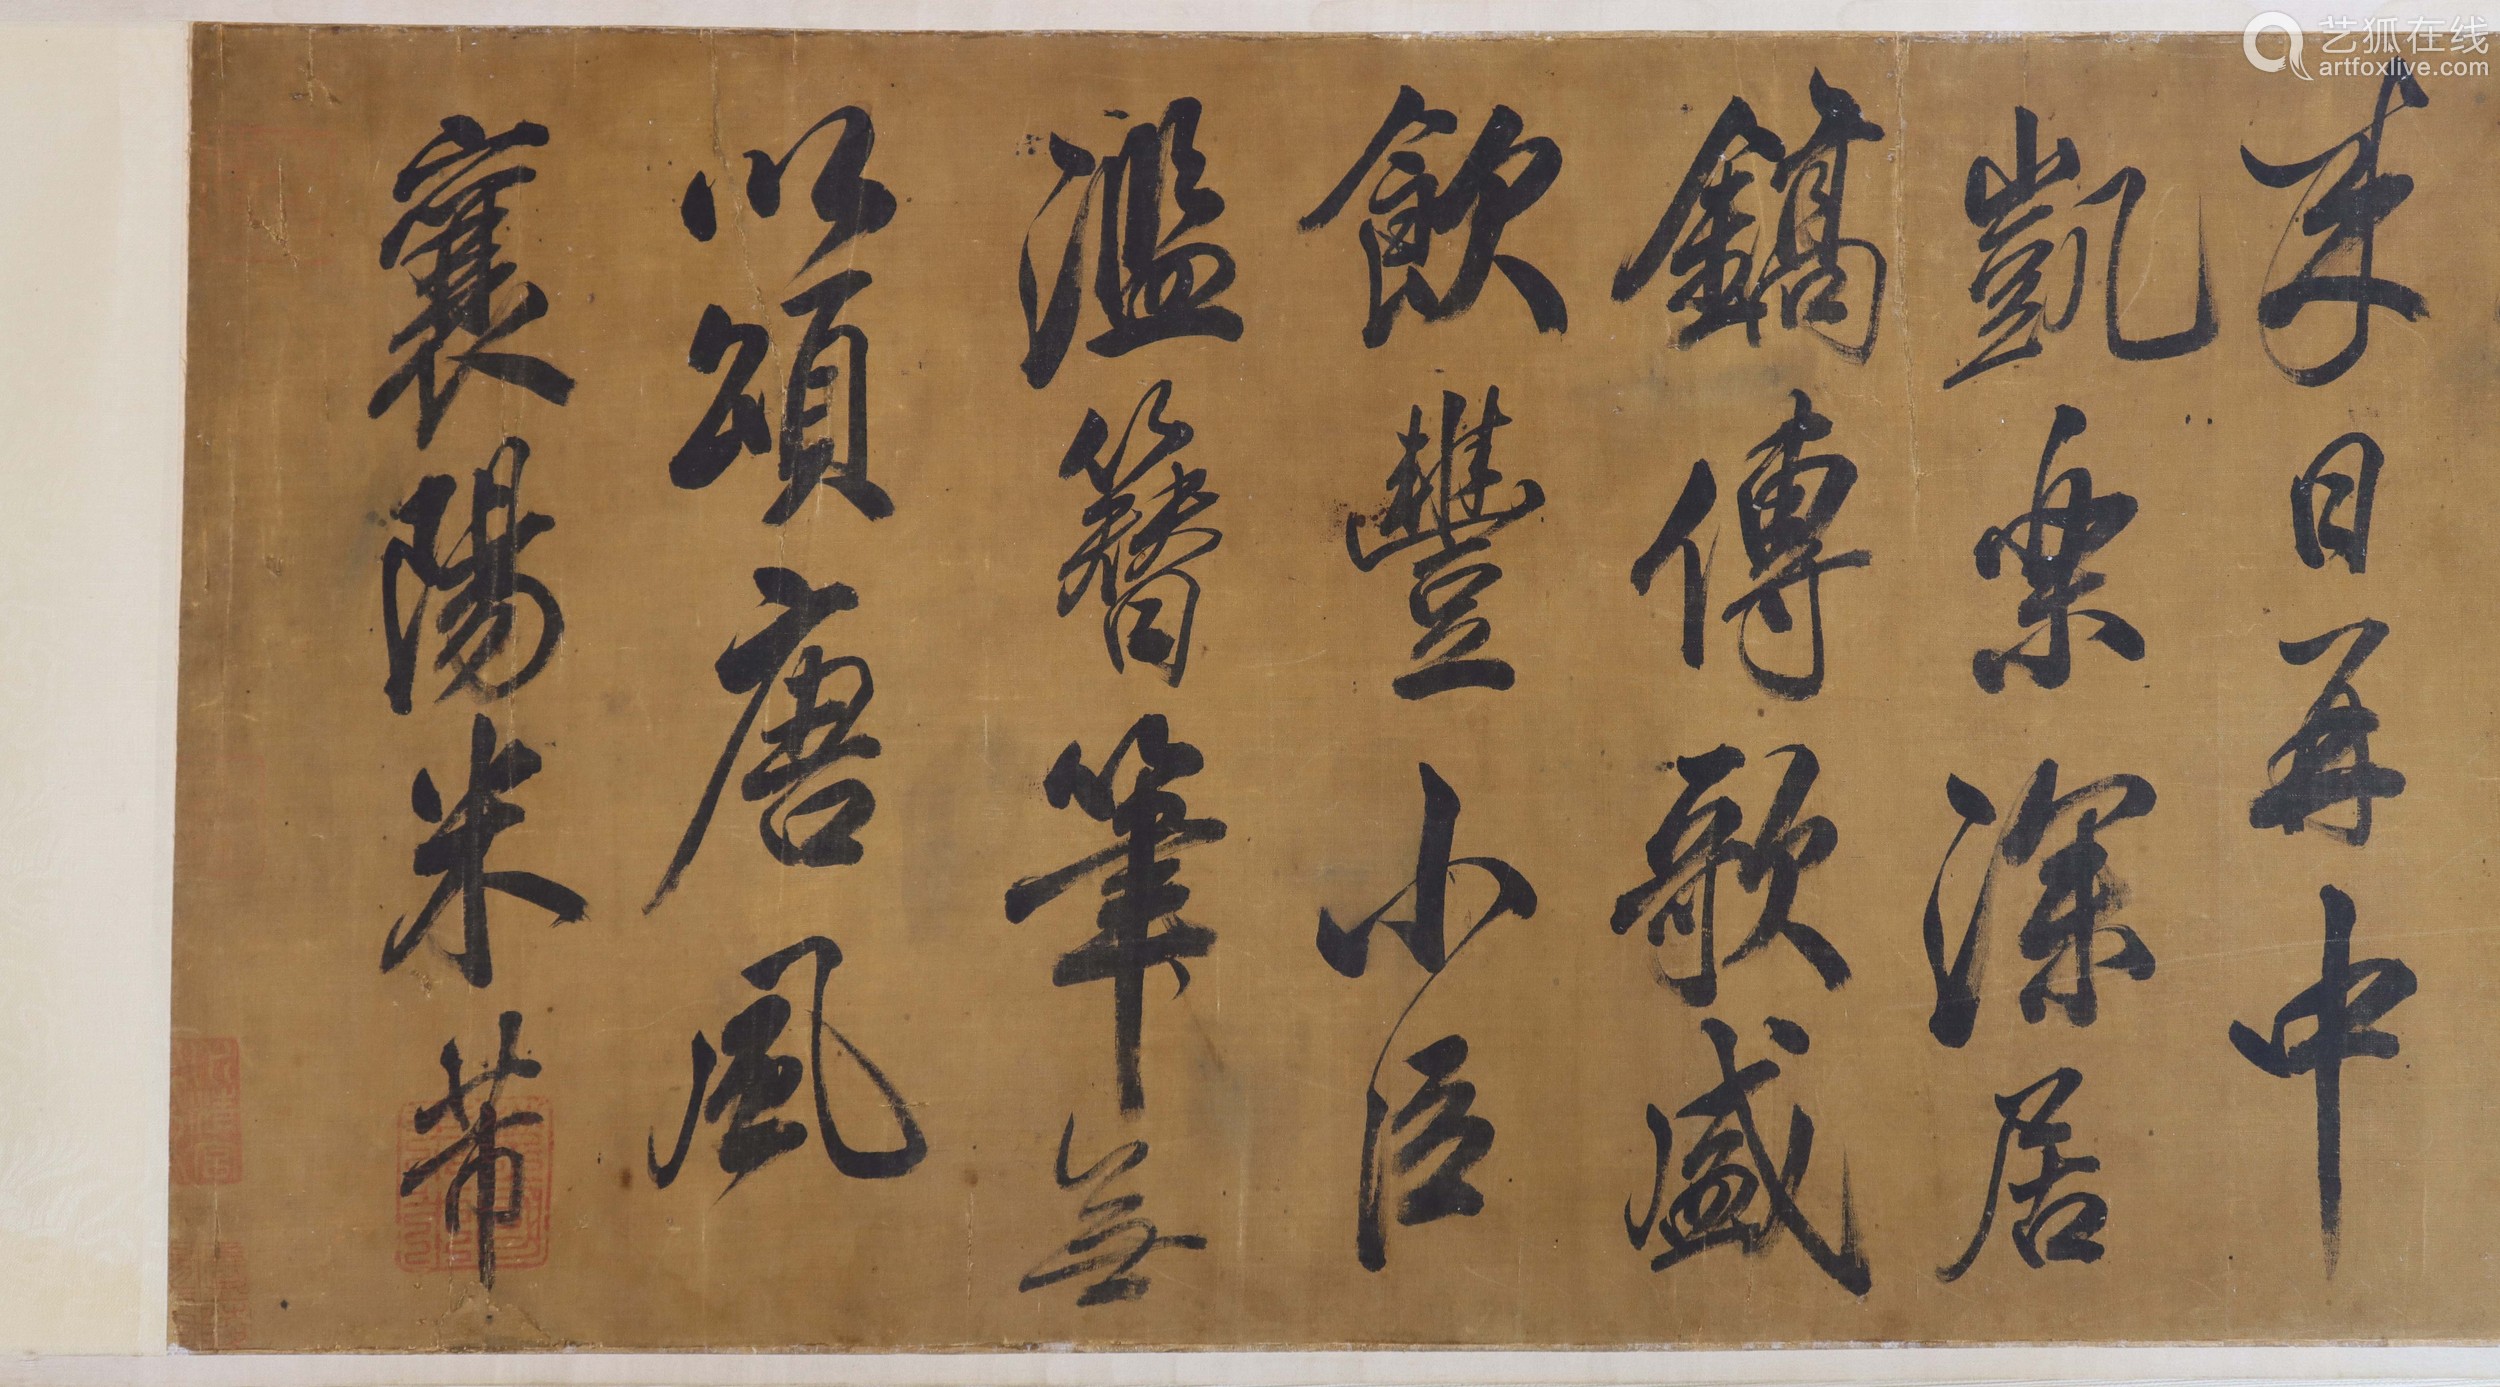 来日再中
凱樂深居
鎬傳歌盛
飲豐小臣
濫簪筆無
以頌唐風
襄陽米芾
艺狐在线
artfoxlive.com